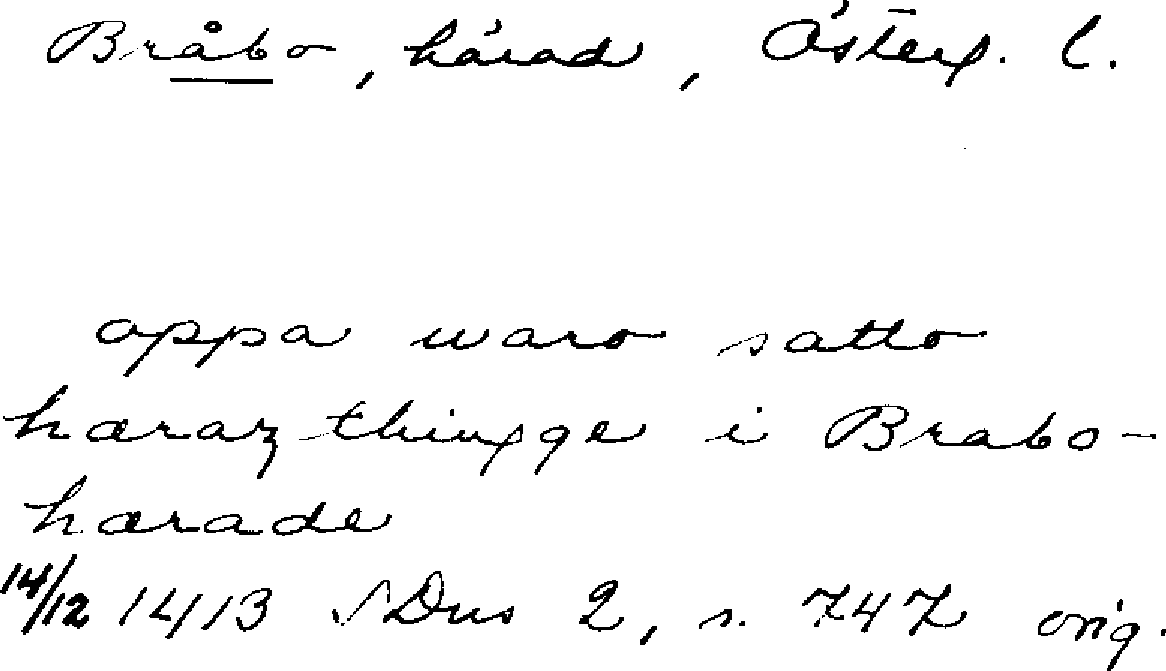 Bråbo, härad, Österg. l.
oppa waro satto
hæraz thingge i Brabo-
hærade
14/12 1413 SDns 2, s. 747 orig.